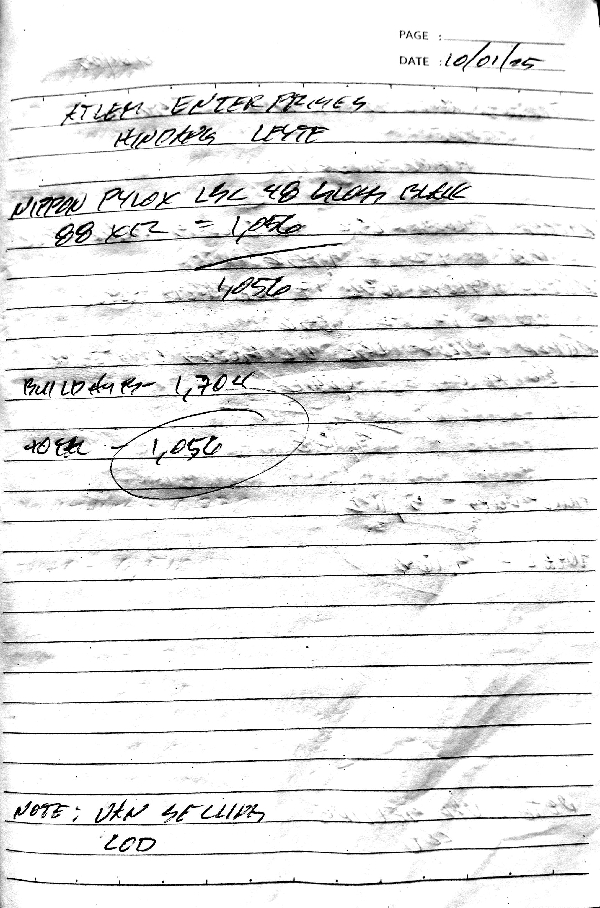 PAGE :
DATE : 10/01/25
ATLEM ENTERPRISES
HINDANG LEYTE
NIPPON PYLOX LSC 48 GLOSS BLACK
88 X 12 = 1,056
1,056
BUILDERS - 1,704
TOTAL - 1,056
NOTE : VAN SELLING
COD